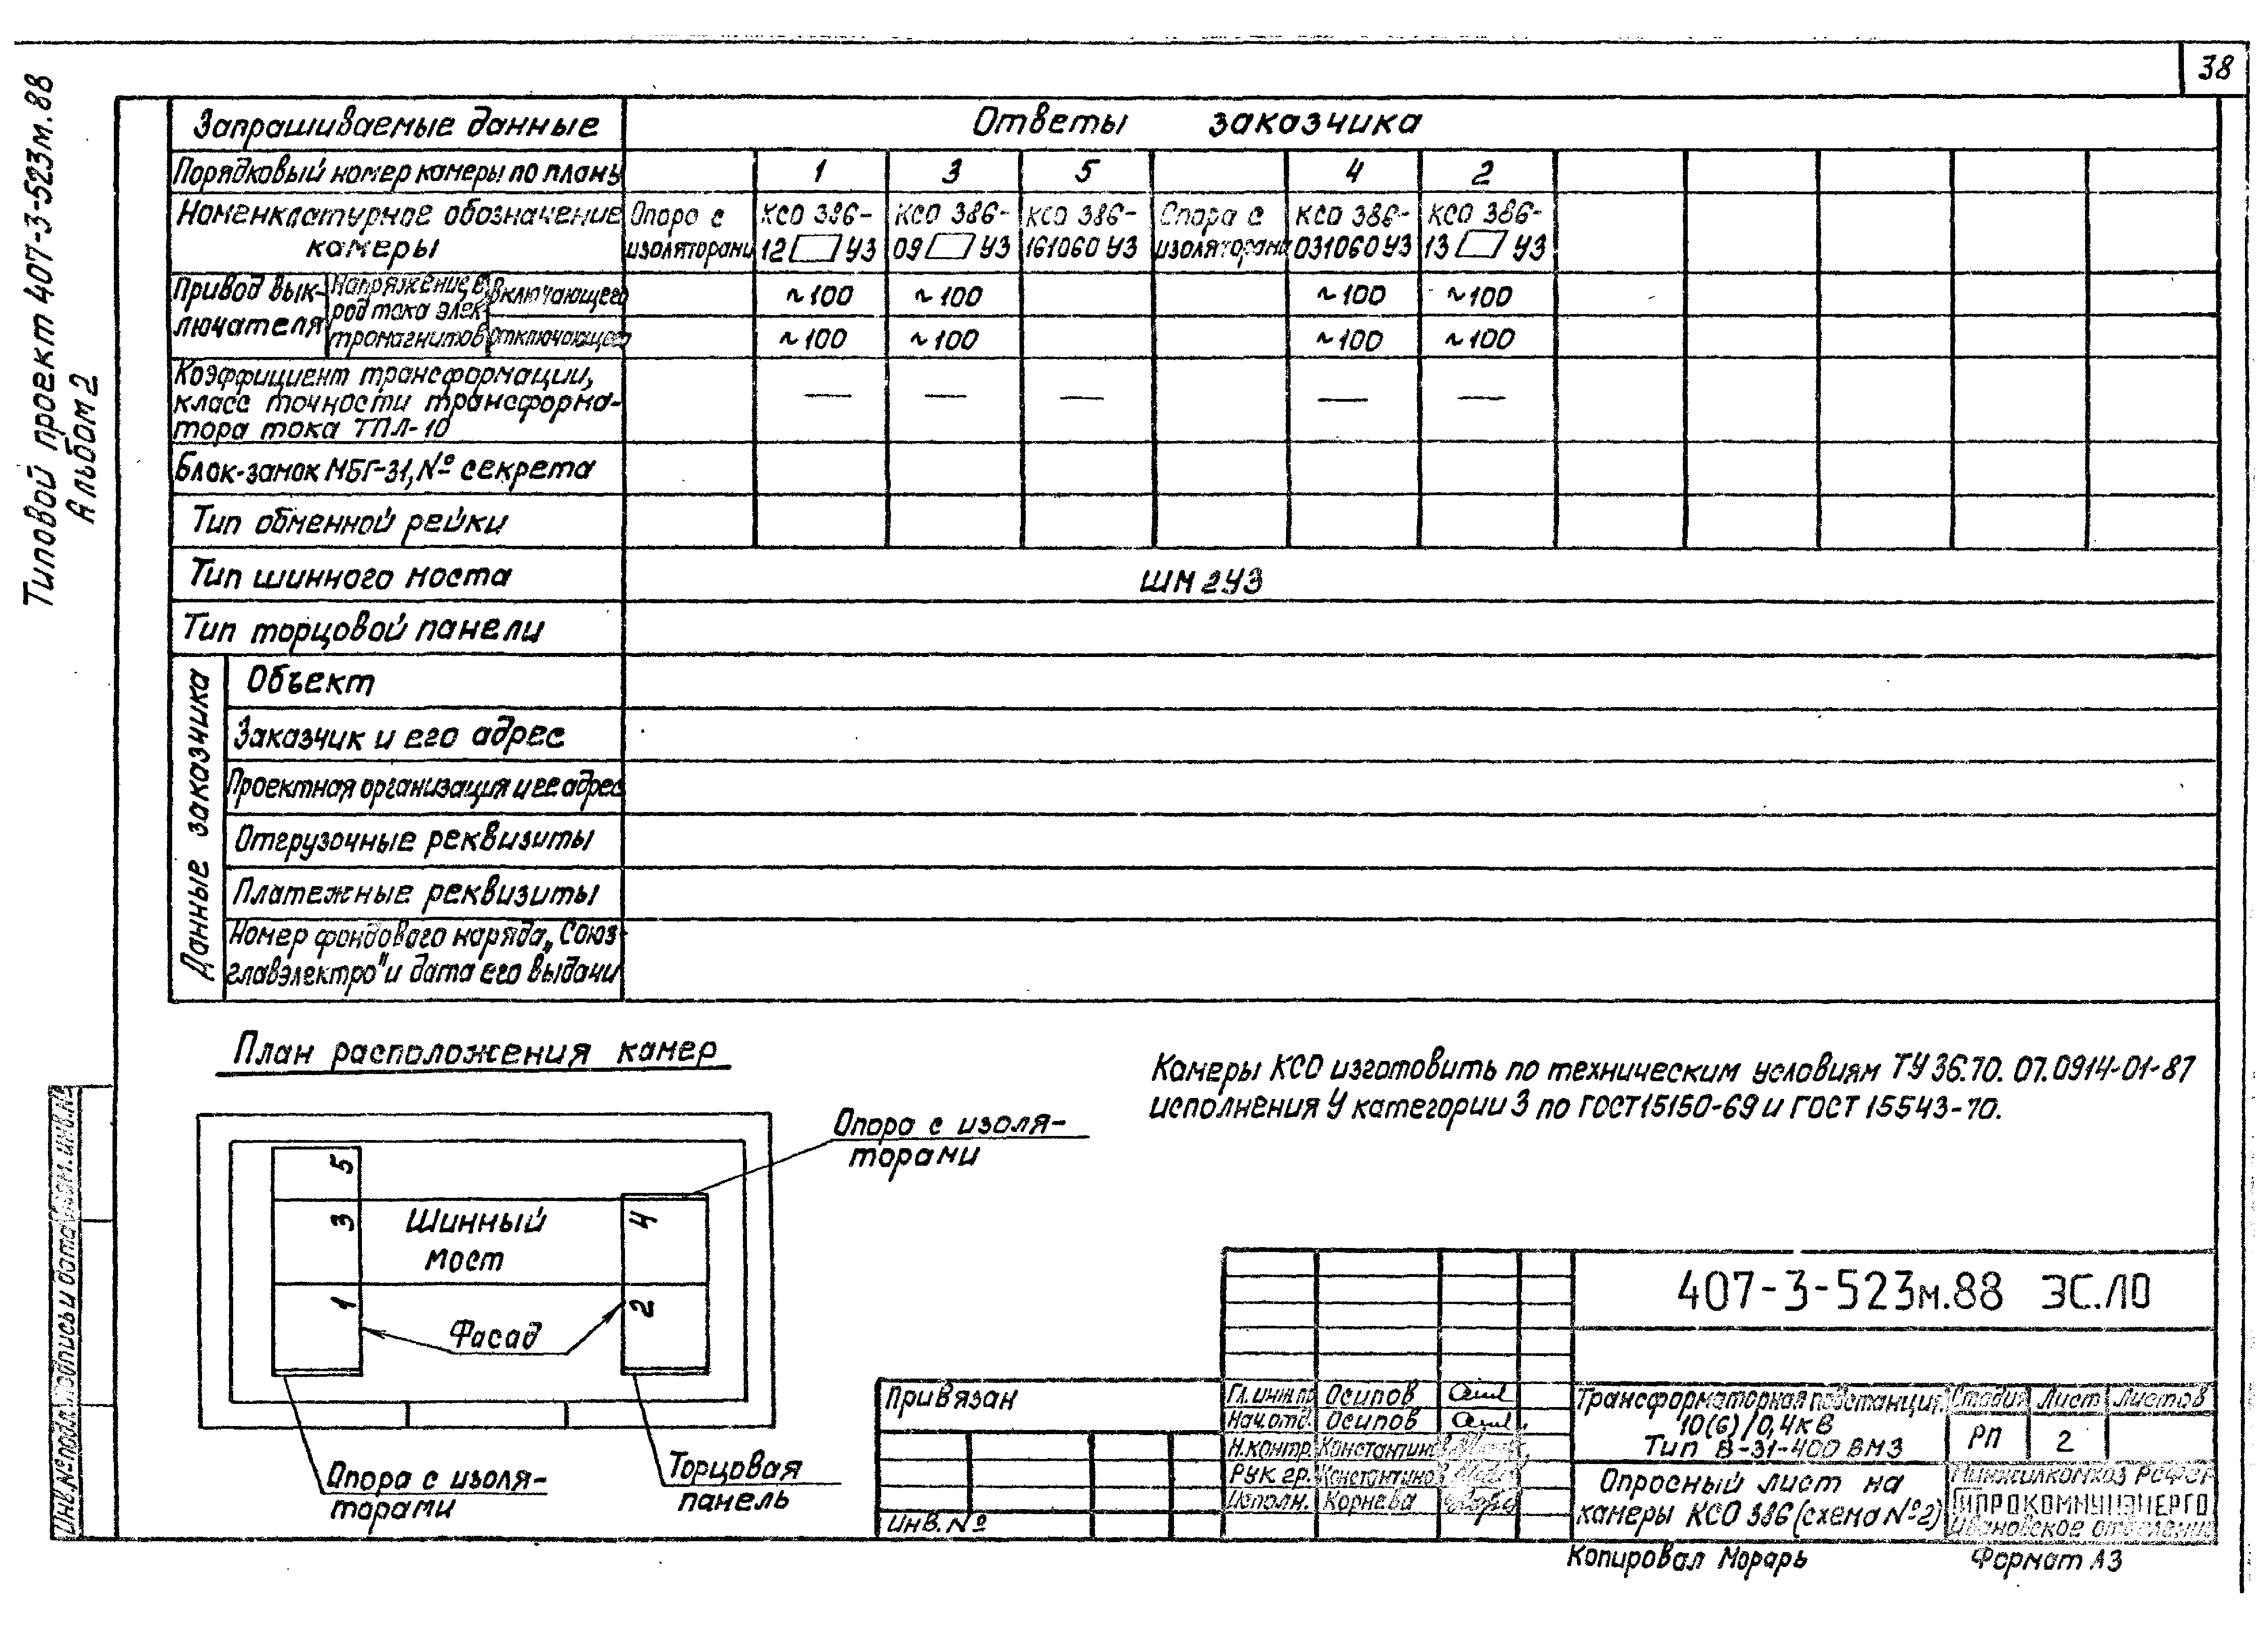 38
Типовой проект 407-3-523м.88
Альбом 2
Запрашиваемые данные
Ответы заказчика
Порядковый номер камеры по плану
1 3 5 4 2
Номенклатурное обозначение
камеры
Опора с
изоляторами
КСО 386-
12 У3
КСО 386-
09 У3
КСО 386-
161060 У3
Опора с
изоляторами
КСО 386-
031060 У3
КСО 386-
13 У3
Привод вык-
лючателя
Напряжение, в
род тока элек
тромагнитов
Включающего
~100 ~100 ~100 ~100
Отключающего
~100 ~100 ~100 ~100
Коэффициент трансформации,
класс точности трансформа-
тора тока ТПЛ-10
— — — — —
Блок-замок МБГ-31, № секрета
Тип обменной рейки
Тип шинного моста
ШМ 2У3
Тип торцовой панели
Данные заказчика
Объект
Заказчик и его адрес
Проектная организация и ее адрес
Отгрузочные реквизиты
Платежные реквизиты
Номер фондового наряда „Союз-
главэлектро" и дата его выдачи
План расположения камер
Камеры КСО изготовить по техническим условиям ТУ 36.70. 07.0914-01-87
исполнения У категории 3 по ГОСТ 15150-69 и ГОСТ 15543-70.
Опора с изоля-
торами
5
3
1
Шинный
мост
4
2
Фасад
Опора с изоля-
торами
Торцовая
панель
Взам. инв. №
Подпись и дата
Инв. № подл.
Привязан
Инв. №
407-3-523м.88 ЭС.ЛО
Гл. инж. пр. Осипов
Нач. отд. Осипов
Н. контр. Константинов
Рук. гр. Константинов
Исполн. Корнева
Трансформаторная подстанция
10(6)/0,4кВ
Тип В-31-400 ВМЗ
Стадия Лист Листов
РП 2
Опросный лист на
камеры КСО 386 (схема №2)
Минжилкомхоз РСФСР
ГИПРОКОММУНЭНЕРГО
Ивановское отделение
Копировал Морарь
Формат А3